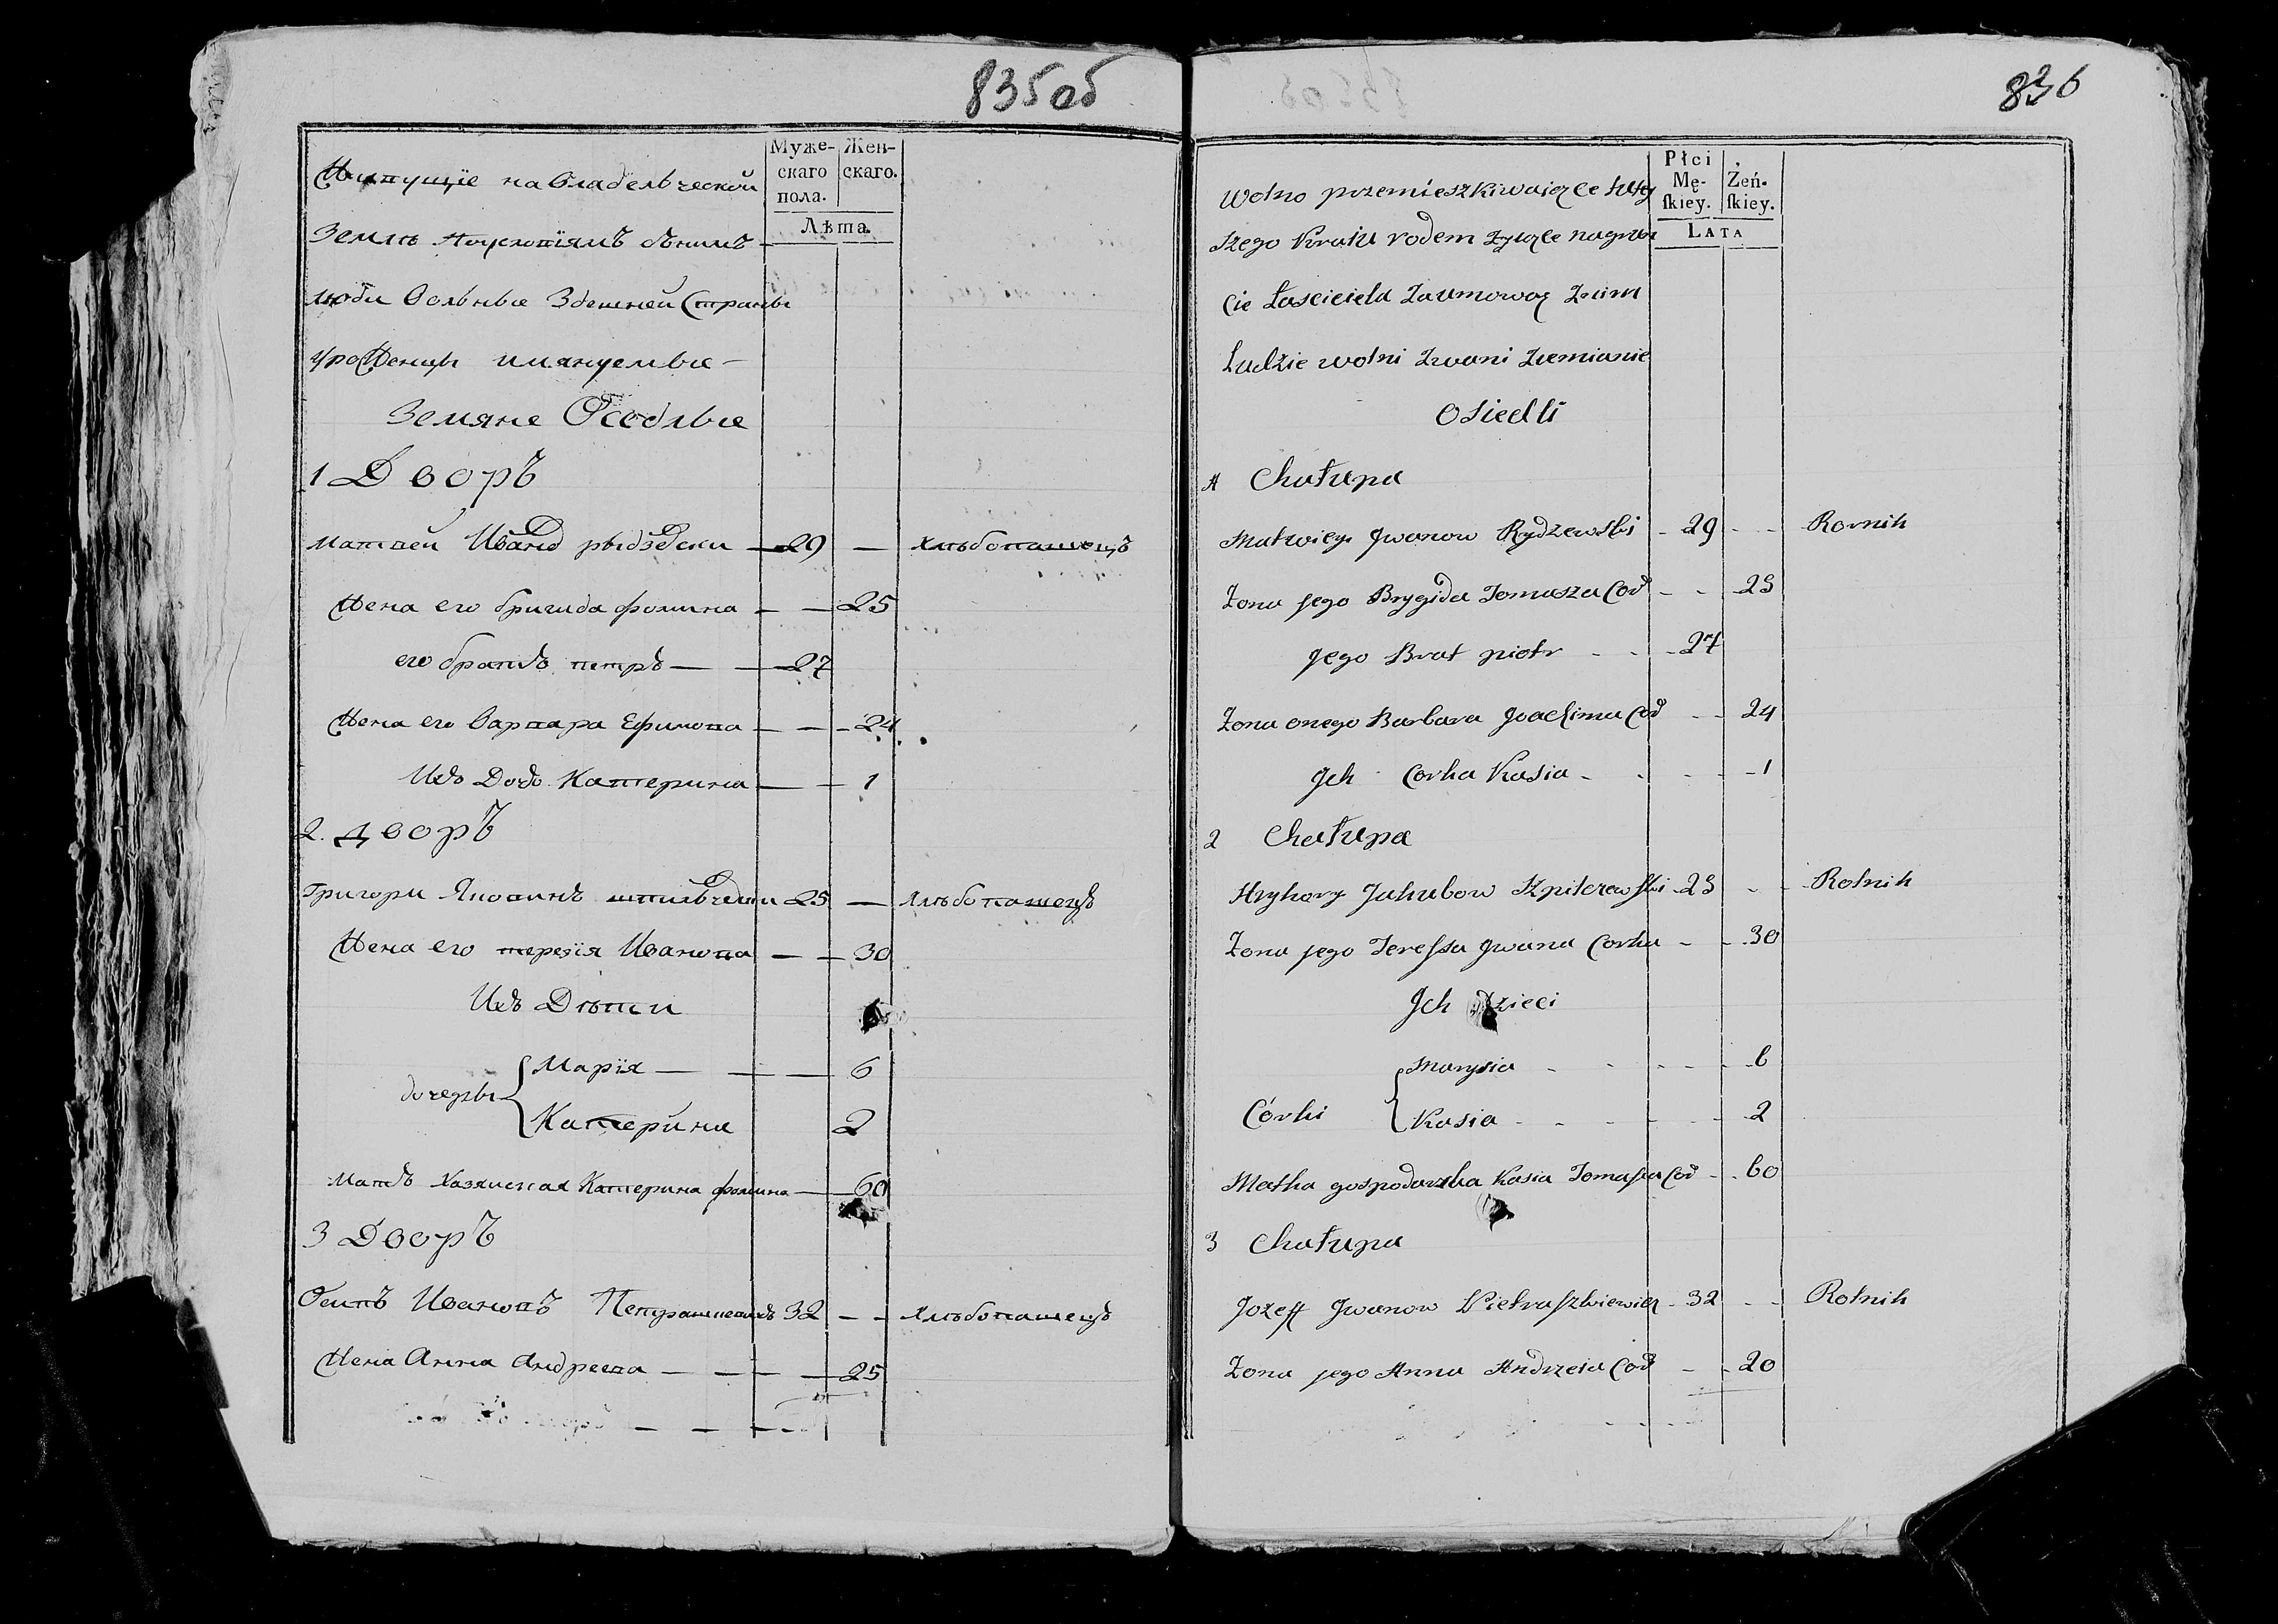 835об
Муже-
скаго
пола.
Жен-
скаго.
Лѣта
Живущіе на владѣльческой
Землѣ по условіямъ съ нимъ —
люди вольные Здешней Страны
уроженцы имянуемые —
Земяне Оседлые
1 Дворъ
Матвей Иванов рыдзевски — 29 — хлѣбопашецъ
Жена его бригида фомина — — 25
его братъ петръ — — 27
Жена его варвара Ефимова — — 24
Ихъ Дочь Катерина — — 1
2. дворъ
Григори Яковинъ шпилевчевски 25 — хлѣбопашецъ
Жена его терезія Иванова — — 30
Ихъ Дѣти
дочеры { Марія — — — 6
Катерина 2
Мать хазяиская Катерина фомина — 60
3 Дворъ
Осипъ Ивановъ Петрашкевичъ 32 — — хлѣбопашецъ
Жена Анна Андреева — — — 25
836
Płci
Mę-
skiey.
Żeń-
skiey.
LATA
Wolno przemieszkiwaiące tutey
szego Kraiu rodem żyiące nagrun
cie Łasciciela Zaumową Znim
Ludzie wolni Zwani Ziemianie
Osiedli
1 Chałupa
Matwiey Jwanow Rydzewski - 29 - - Rornik
Zona jego Brygida Tomasza Cor - - 25
Jego Brat piotr - - - 27
Zona onego Barbara Joachima Cor - - 24
Jch Corka Kasia - - - - 1
2 Chałupa
Hryhory Jakubow Szpilczewski - 25 - - Rolnik
Zona jego Teressa Jwana Corka - - 30
Jch Dzieci
Córki { Marysia - - - - 6
Kasia - - - - - 2
Matka gospodarska Kasia Tomasza Cor - - 60
3 Chałupa
Jozeff Jwanow Pietraszkiewicz - 32 - - Rolnik
Zona jego Anna Andrzeia Cor - - 20